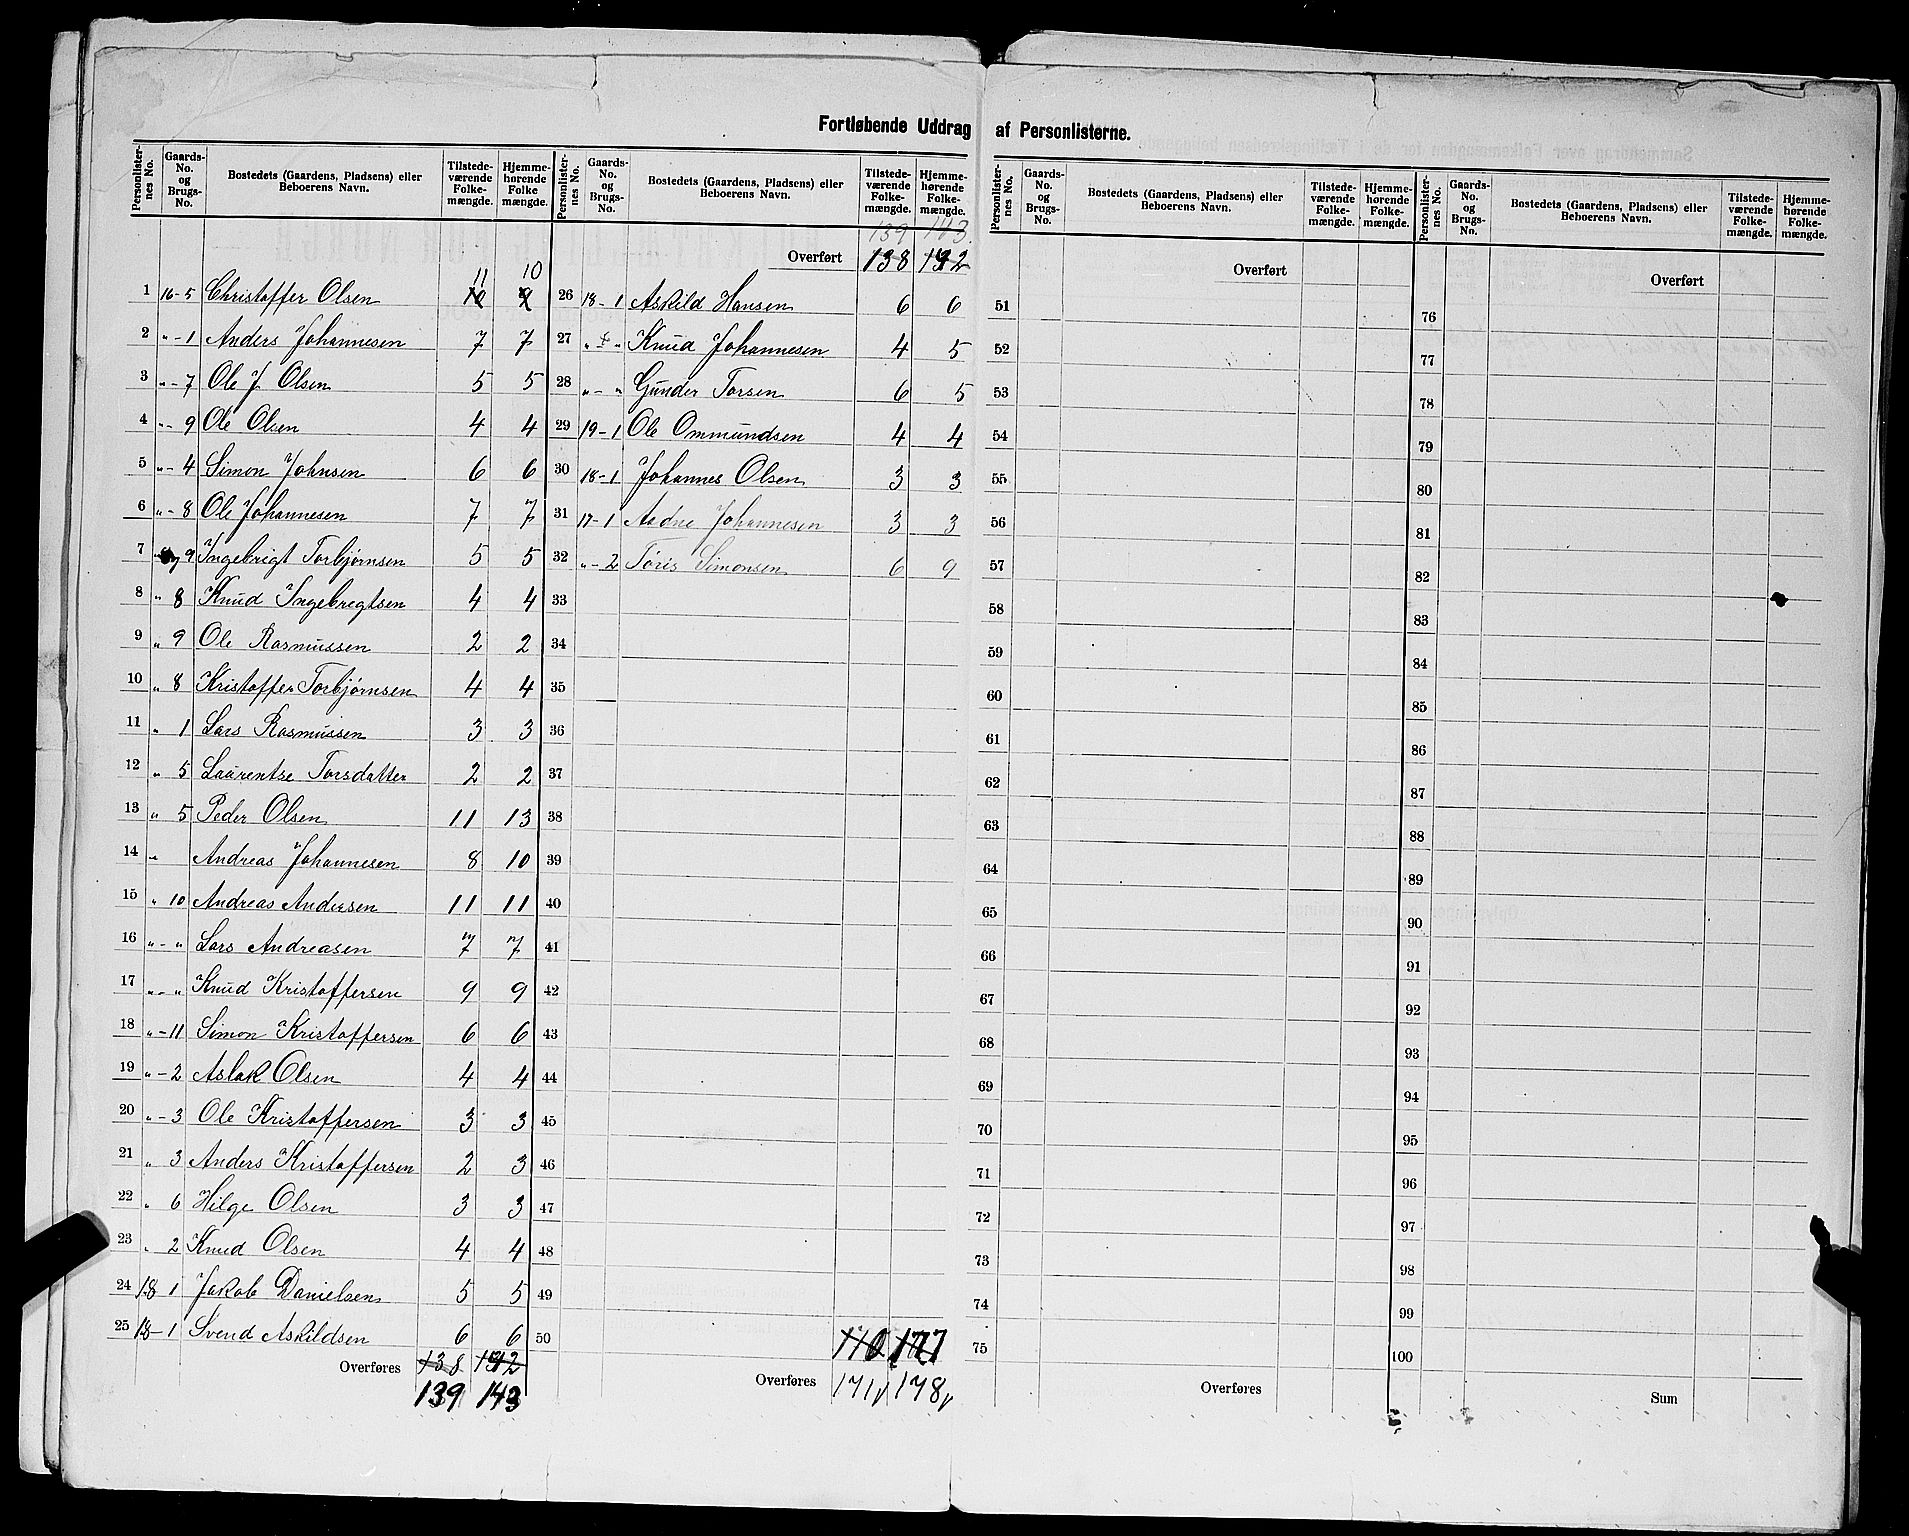 Fortløbende Uddrag af Personlisterne.
Personlisternes No. Gaards-No. og Brugs-No. Bostedets (Gaardens, Pladsens) eller Beboerens Navn. Tilstedeværende Folkemængde. Hjemmehørende Folkemængde.
1 16-5 Christoffer Olsen 10 11 9 10
2 "-1 Anders Johannesen 7 7
3 "-7 Ole J. Olsen 5 5
4 "-9 Ole Olsen 4 4
5 "-4 Simon Johnsen 6 6
6 "-8 Ole Johannesen 7 7
7 " 9 Ingebrigt Torbjørnsen 5 5
8 " 8 Knud Ingebregtsen 4 4
9 " 9 Ole Rasmussen 2 2
10 " 8 Kristoffer Torbjørnsen 4 4
11 " 1 Lars Rasmussen 3 3
12 " 5 Laurentse Torsdatter 2 2
13 " 5 Peder Olsen 11 13
14 " Andreas Johannesen 8 10
15 " 10 Andreas Andersen 11 11
16 "-" Lars Andreasen 7 7
17 "-" Knud Kristoffersen 9 9
18 "-11 Simon Kristoffersen 6 6
19 "-2 Aslak Olsen 4 4
20 "-3 Ole Kristoffersen 3 3
21 " 3 Anders Kristoffersen 2 3
22 " 6 Hilge Olsen 3 3
23 " 2 Knud Olsen 4 4
24 18 1 Jakob Danielsen 5 5
25 18-1 Svend Askildsen 6 6
Overføres 138 142
139 143
Personlisternes No. Gaards-No. og Brugs-No. Bostedets (Gaardens, Pladsens) eller Beboerens Navn. Tilstedeværende Folkemængde. Hjemmehørende Folkemængde.
139 143
Overført 138 142
26 18-1 Askild Hansen 6 6
27 "-" Knud Johannesen 4 5
28 "-" Gunder Torsen 6 5
29 19-1 Ole Ommundsen 4 4
30 18-1 Johannes Olsen 3 3
31 17-1 Aadne Johannesen 3 3
32 "-2 Töris Simonsen 6 9
33
34
35
36
37
38
39
40
41
42
43
44
45
46
47
48
49
50
170 177
Overføres 171 178
Personlisternes No. Gaards-No. og Brugs-No. Bostedets (Gaardens, Pladsens) eller Beboerens Navn. Tilstedeværende Folkemængde. Hjemmehørende Folkemængde.
Overført
51
52
53
54
55
56
57
58
59
60
61
62
63
64
65
66
67
68
69
70
71
72
73
74
75
Overføres
Personlisternes No. Gaards-No. og Brugs-No. Bostedets (Gaardens, Pladsens) eller Beboerens Navn. Tilstedeværende Folkemængde. Hjemmehørende Folkemængde.
Overført
76
77
78
79
80
81
82
83
84
85
86
87
88
89
90
91
92
93
94
95
96
97
98
99
100
Sum